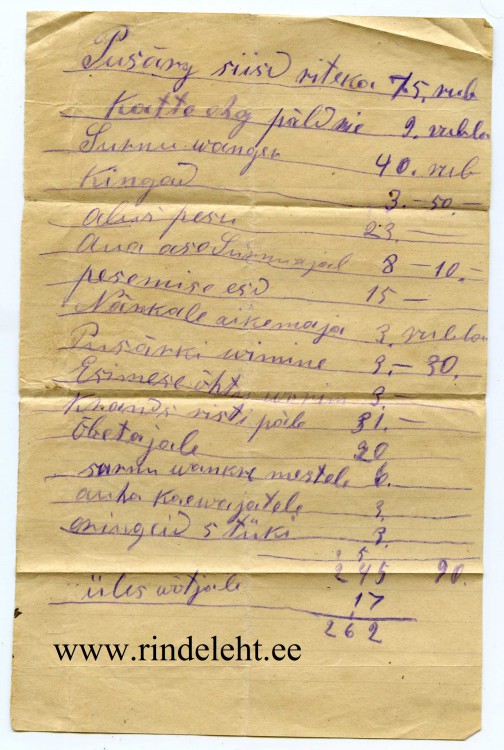 Pusärg siise riteka 75. rub
Katte ehg päld rie 9. rubla
Surnu wanger 40. rub
Kingad 3.-50.-
alus pesu 23.-
Aua aso Surnuajal 8-10.-
pesemise esd 15-
Nänkale äikemaja 3. rubla
Pusärki wimine 3.-30.
Esimese õhtu 3.-
risti päle 31.-
Õbetajale 20
surnu wankre mestele 6.
auha kaewajatele 3.
eningeid 5 tüki 3.
5
245 90.
üles wõtjale 17
262
www.rindeleht.ee